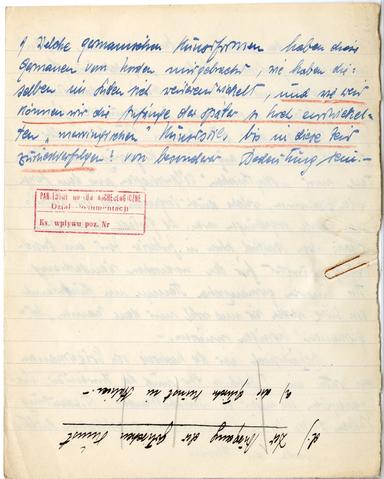 Welche germanischen Kunstformen haben diese
Germanen von Norden mitgebracht, wie haben die-
selben im Süden sich weiterentwickelt, und wie weit
können wir die Anfänge des später so hoch entwickel-
ten „merowingischen" Kunststils, bis in diese Zeit
zurückverfolgen? von besonderer Bedeutung sein.-
PAŃSTWOWE MUZEUM ARCHEOLOGICZNE
Dział Dokumentacji
Ks. wpływu poz. Nr
der gotischen Kunst
a) die gotische Kunst in Italien.-